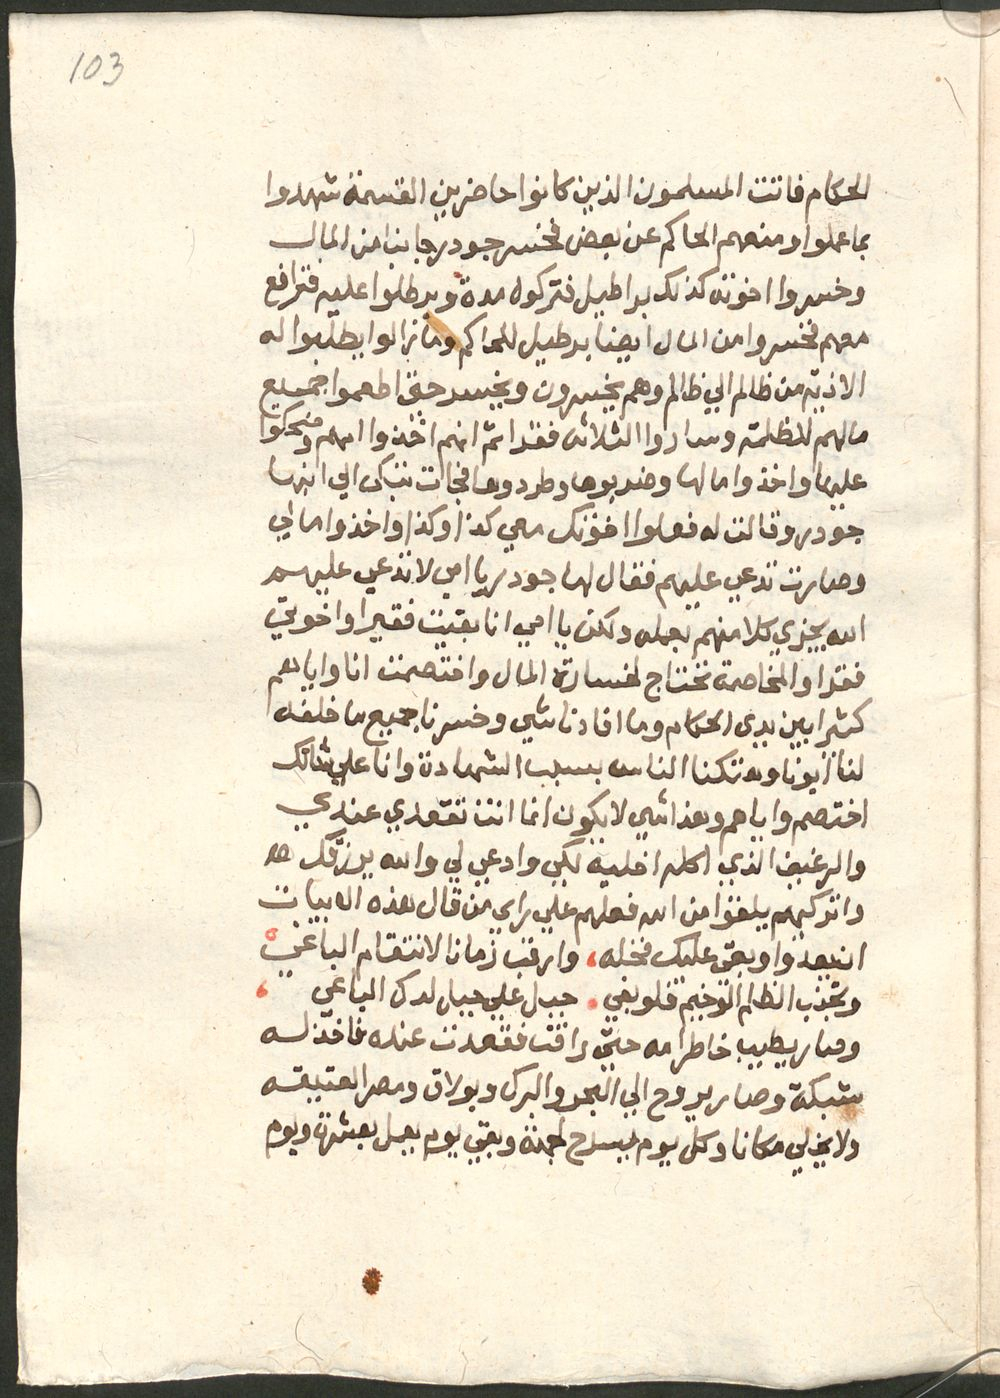 103
الحكام فاتت المسلمون الذين كانوا حاضرين القسمة شهدوا
بما عملوا ومنعهم الحاكم عن بعض فخسر جودر جانبا من المال
وخسروا اخوته كذلك براطيل فتركوه مدة وبرطلوا عليه فترافع
معهم فخسروا من المال ايضا برطيل للحاكم وما زالوا يطلبوا له
الاذيه من ظالم الي ظالم وهم يخسرون ويخسر حتى اطعموا جميع
مالهم للظلمه وصاروا الثلاثه فقرا ثم انهم اخذوا امهم وضحكوا
عليها واخذوا مالها وضربوها وطردوها فجات تبكى الي ابنها
جودر وقالت له فعلوا اخوتك معي كذا وكذا واخذوا مالي
وصارت تدعي عليهم فقال لها جودر يا امي لا تدعي عليهم
الله يجزي كلا منهم بعمله ولكن يا امي انا بقيت فقيرا واخوتي
فقرا والمخاصمة تحتاج لخسارة المال واختصمت انا واياهم
كثيرا بين يدى الحكام وما افادنا شي وخسرنا جميع ما خلفه
لنا ابونا وهتكنا الناس بسبب الشهادة وانا علي شانك
اختصم واياهم وهذا شي لا يكون انما انت تقعدي عندي
والرغيف الذي اكله اخليه لكي وادعي لي والله يرزقك
واتركيهم يلقوا من الله فعلهم علي راي من قال هذه الابيات
ان يبغ ذو بغى عليك فخله، وارقب زمانا لانتقام الباغي
وتجنب الظلم الوخيم فلو بغي جبل علي جبل لدك الباغي
وصار يطيب خاطر امه حتى راقت فقعدت عنده فاخذ له
شبكة وصار يروح الي البحر والبرك وبولاق ومصر العتيقه
ولا يخلي مكانا وكل يوم يسرح لجهة وبقي يوم يعمل بعشرة ويوم